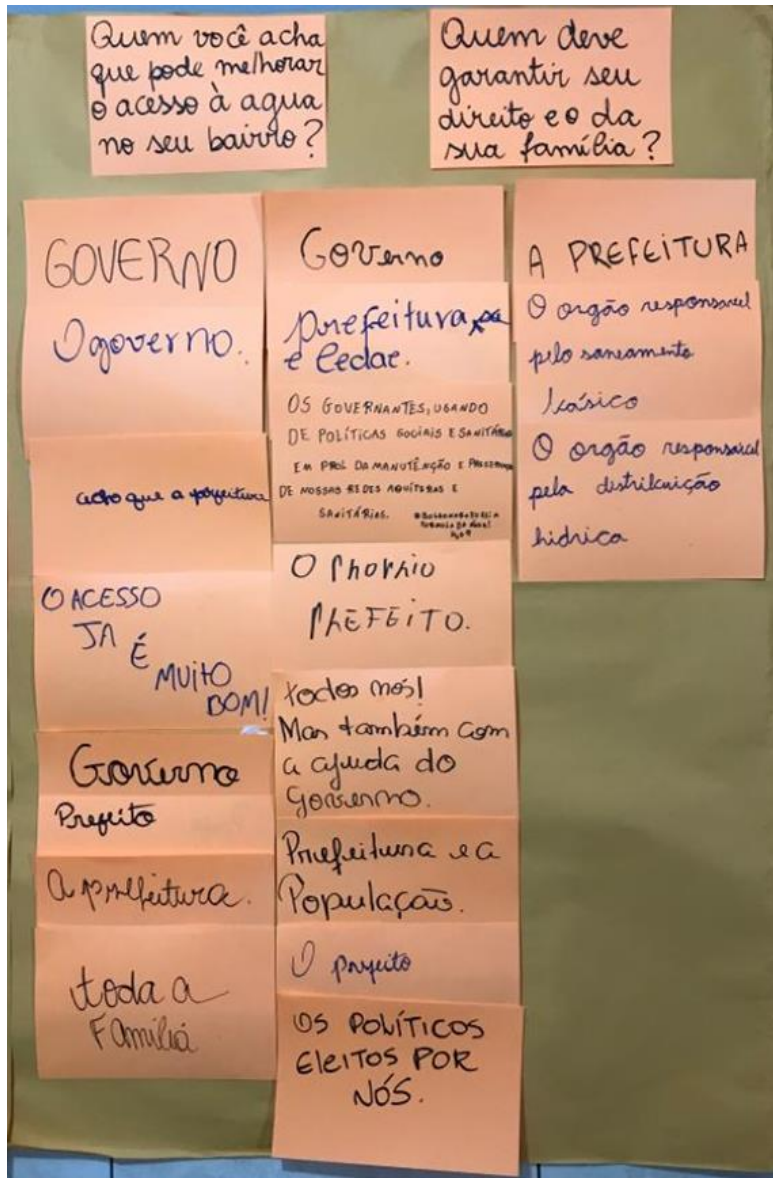 Quem você acha
que pode melhorar
o acesso à agua
no seu bairro?
Quem deve
garantir seu
direito e o da
sua família?
GOVERNO
O governo.
acho que a prefeitura
O ACESSO
JA
É
MUITO
BOM!
Governo
Prefeito
A prefeitura.
toda a
Familiá
Governo
prefeitura
e Cedae.
OS GOVERNANTES, USANDO
DE POLÍTICAS SOCIAIS E SANITÁRIAS
EM PROL DA MANUTENÇÃO E
DE NOSSAS REDES AQUÍFERAS E
SANITÁRIAS.
O PROPRIO
PREFEITO.
todos nós!
Mas também com
a ajuda do
Governo.
Prefeitura e a
População.
O prefeito
OS POLÍTICOS
ELEITOS POR
NÓS.
A PREFEITURA
O orgão responsavel
pelo saneamento
básico
O orgão responsavel
pela distribuição
hidrica